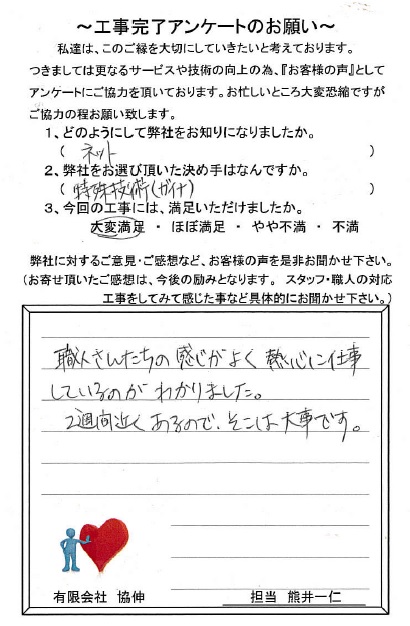 ～工事完了アンケートのお願い～
私達は、このご縁を大切にしていきたいと考えております。
つきましては更なるサービスや技術の向上の為、『お客様の声』として
アンケートにご協力を頂いております。お忙しいところ大変恐縮ですが
ご協力の程お願い致します。
1、どのようにして弊社をお知りになりましたか。
( ネット )
2、弊社をお選び頂いた決め手はなんですか。
( 特殊技術(ガイナ) )
3、今回の工事には、満足いただけましたか。
大変満足 ・ ほぼ満足 ・ やや不満 ・ 不満
弊社に対するご意見・ご感想など、お客様の声を是非お聞かせ下さい。
(お寄せ頂いたご感想は、今後の励みとなります。 スタッフ・職人の対応
工事をしてみて感じた事など具体的にお聞かせ下さい。)
職人さんたちの感じがよく 熱心に仕事
しているのが わかりました。
2週間近く あるので、そこは大事です。
有限会社 協伸
担当 熊井一仁